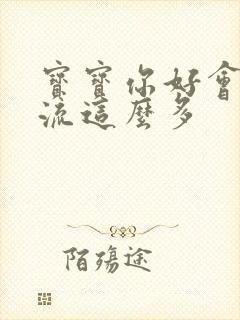 寶寶你好會
流這麼多
陌殤途